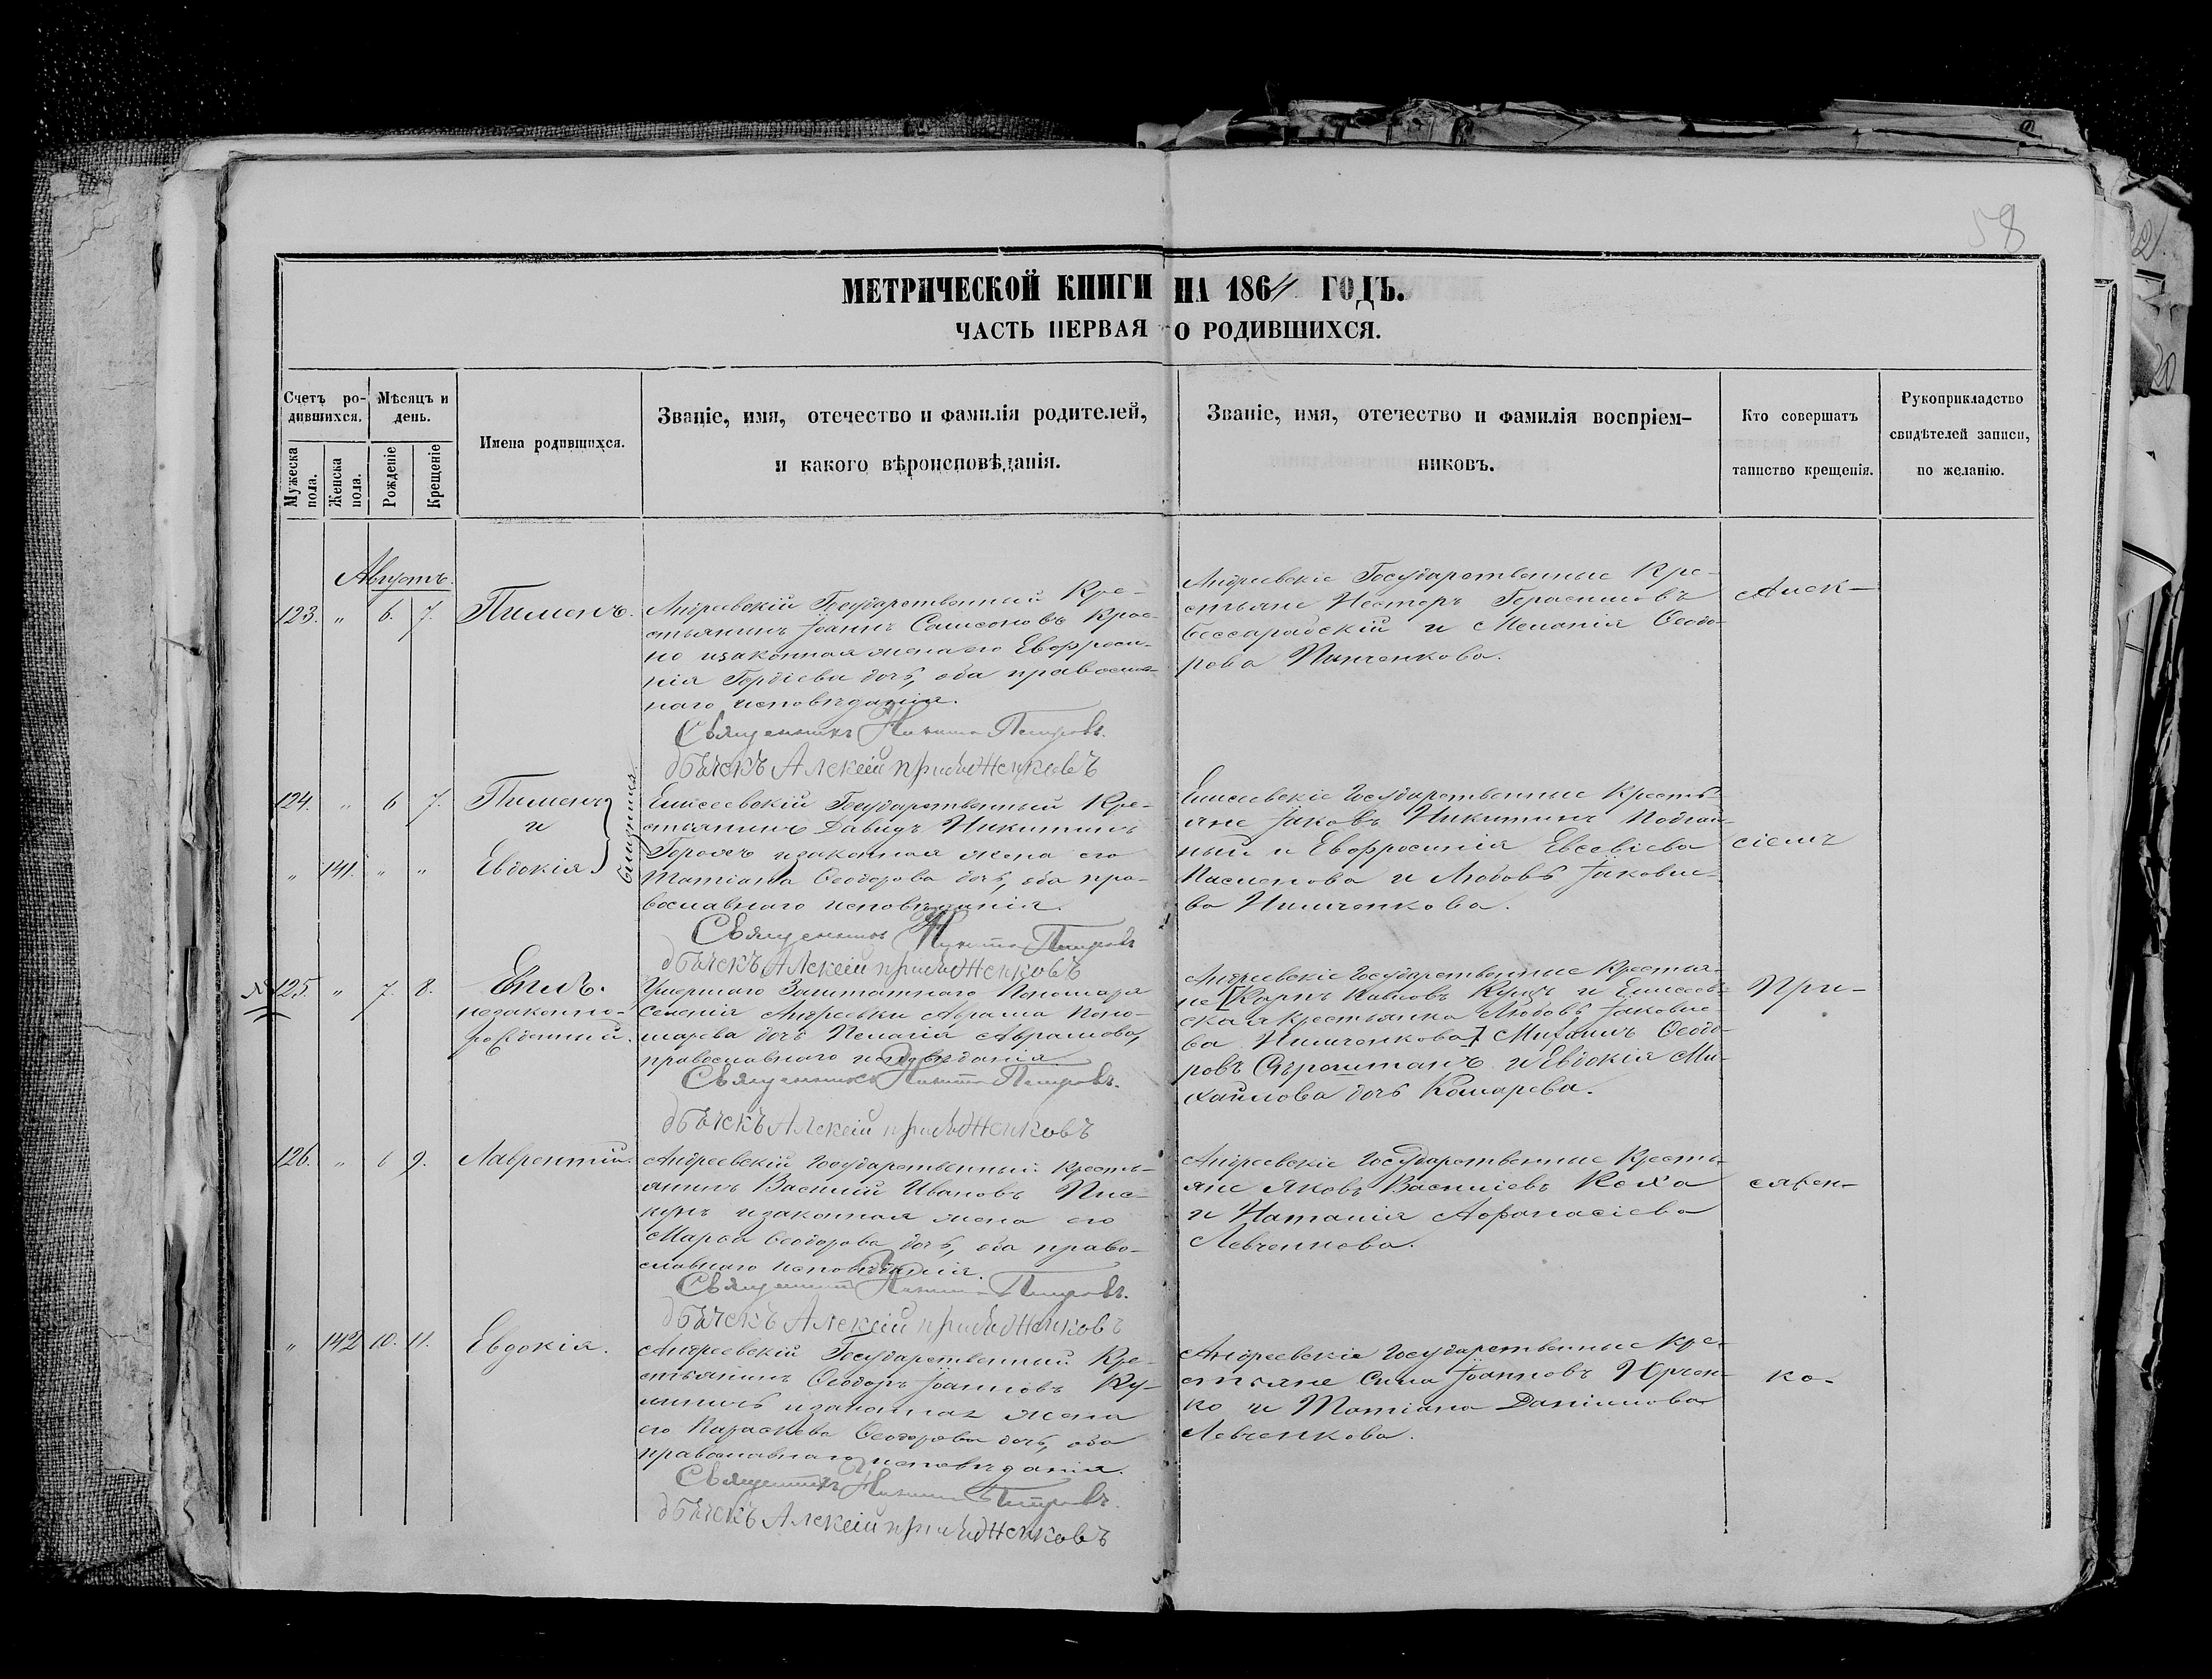 58
МЕТРИЧЕСКОЙ КНИГИ НА 1864 ГОДЪ.
ЧАСТЬ ПЕРВАЯ О РОДИВШИХСЯ.
Счетъ ро-
дившихся.
Мужеска пола.
Женска пола.
Мѣсяцъ и
день.
Рожденіе
Крещеніе
Имена родившихся.
Званіе, имя, отечество и фамилія родителей,
и какого вѣроисповѣданія.
Званіе, имя, отечество и фамилія воспріем-
никовъ.
Кто совершатъ
таинство крещенія.
Рукоприкладство
свидѣтелей записи,
по желанію.
Августъ.
123. " 6. 7. Пименъ.
Андреевскій Государственный Кре-
стьянинъ Іоаннъ Самсоновъ
но и законная жена его Евфроси-
нія Гордіева дочь, оба православ-
наго исповѣданія.
Священникъ Никита Петровъ.
дьячекъ Алексій
Андреевскіе Государственные Кре-
стьяне Несторъ Герасимовъ
Бессарабскій и Меланія Ѳеодо-
рова
Алек-
124. " 6 7. Пименъ
и
" 141. " " Евдокія
близнята
Елисеевскій Государственный Кре-
стьянинъ Давидъ Никитинъ
и законная жена его
Татіана Ѳеодорова дочь, оба пра-
вославнаго исповѣданія.
Священникъ Никита Петровъ
дьячекъ Алексій
Елисеевскіе Государственные Кресть-
яне Іаковъ Никитинъ
и Евфросинія Евсевіева
и Любовь Іаковле-
ва
сіемъ
№ 125. " 7. 8. Емил.
незаконно-
рожденный.
Умершаго Заштатнаго Пономаря
селенія Андреевки Аврама Поно-
марева дочь Пелагія Аврамова,
православнаго исповѣданія
Священникъ Никита Петровъ.
дьячекъ Алексій
Андреевскіе Государственные Крестья-
не [Карпъ Павловъ и Елисеев-
ская крестьянка Любовь Іаковле-
ва ] Михаилъ Ѳеодо-
ровъ и Евдокія Ми-
хайлова дочь Комарева.
При-
126. " 9. Лаврентій.
Андреевскій Государственный Кресть-
янинъ Василій Ивановъ Пис-
кунъ и законная жена его
Марѳа Ѳеодорова дочь, оба право-
славнаго исповѣданія.
Священникъ Никита Петровъ.
дьячекъ Алексій
Андреевскіе Государственные Кресть-
яне Яковъ Василіевъ
и Наталія Аѳанасіева
Левченкова.
сяжен-
" 142 10. 11. Евдокія.
Андреевскій Государственный Кре-
стьянинъ Ѳеодоръ Іоанновъ
и законная жена
его Параскева Ѳеодорова дочь, оба
православнаго исповѣданія.
Священникъ Никита Петровъ.
дьячекъ Алексій
Андреевскіе Государственные Кре-
стьяне Сила Іоанновъ Юрчен-
ко и Татіана Даніилова
Левченкова.
ко-